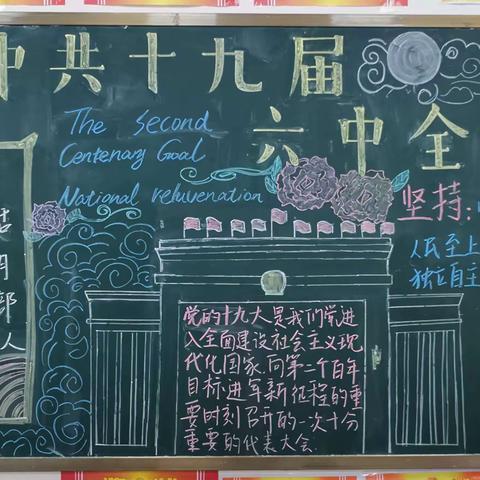 中共十九届
六中全
The second
Centenary Goal
National rejuvenation
坚持：
人民至上
独立自主
部
人
党的十九大是我们党进
入全面建设社会主义现
代化国家.向第二个百年
目标进军新征程的重
要时刻召开的一次十分
重要的代表大会.